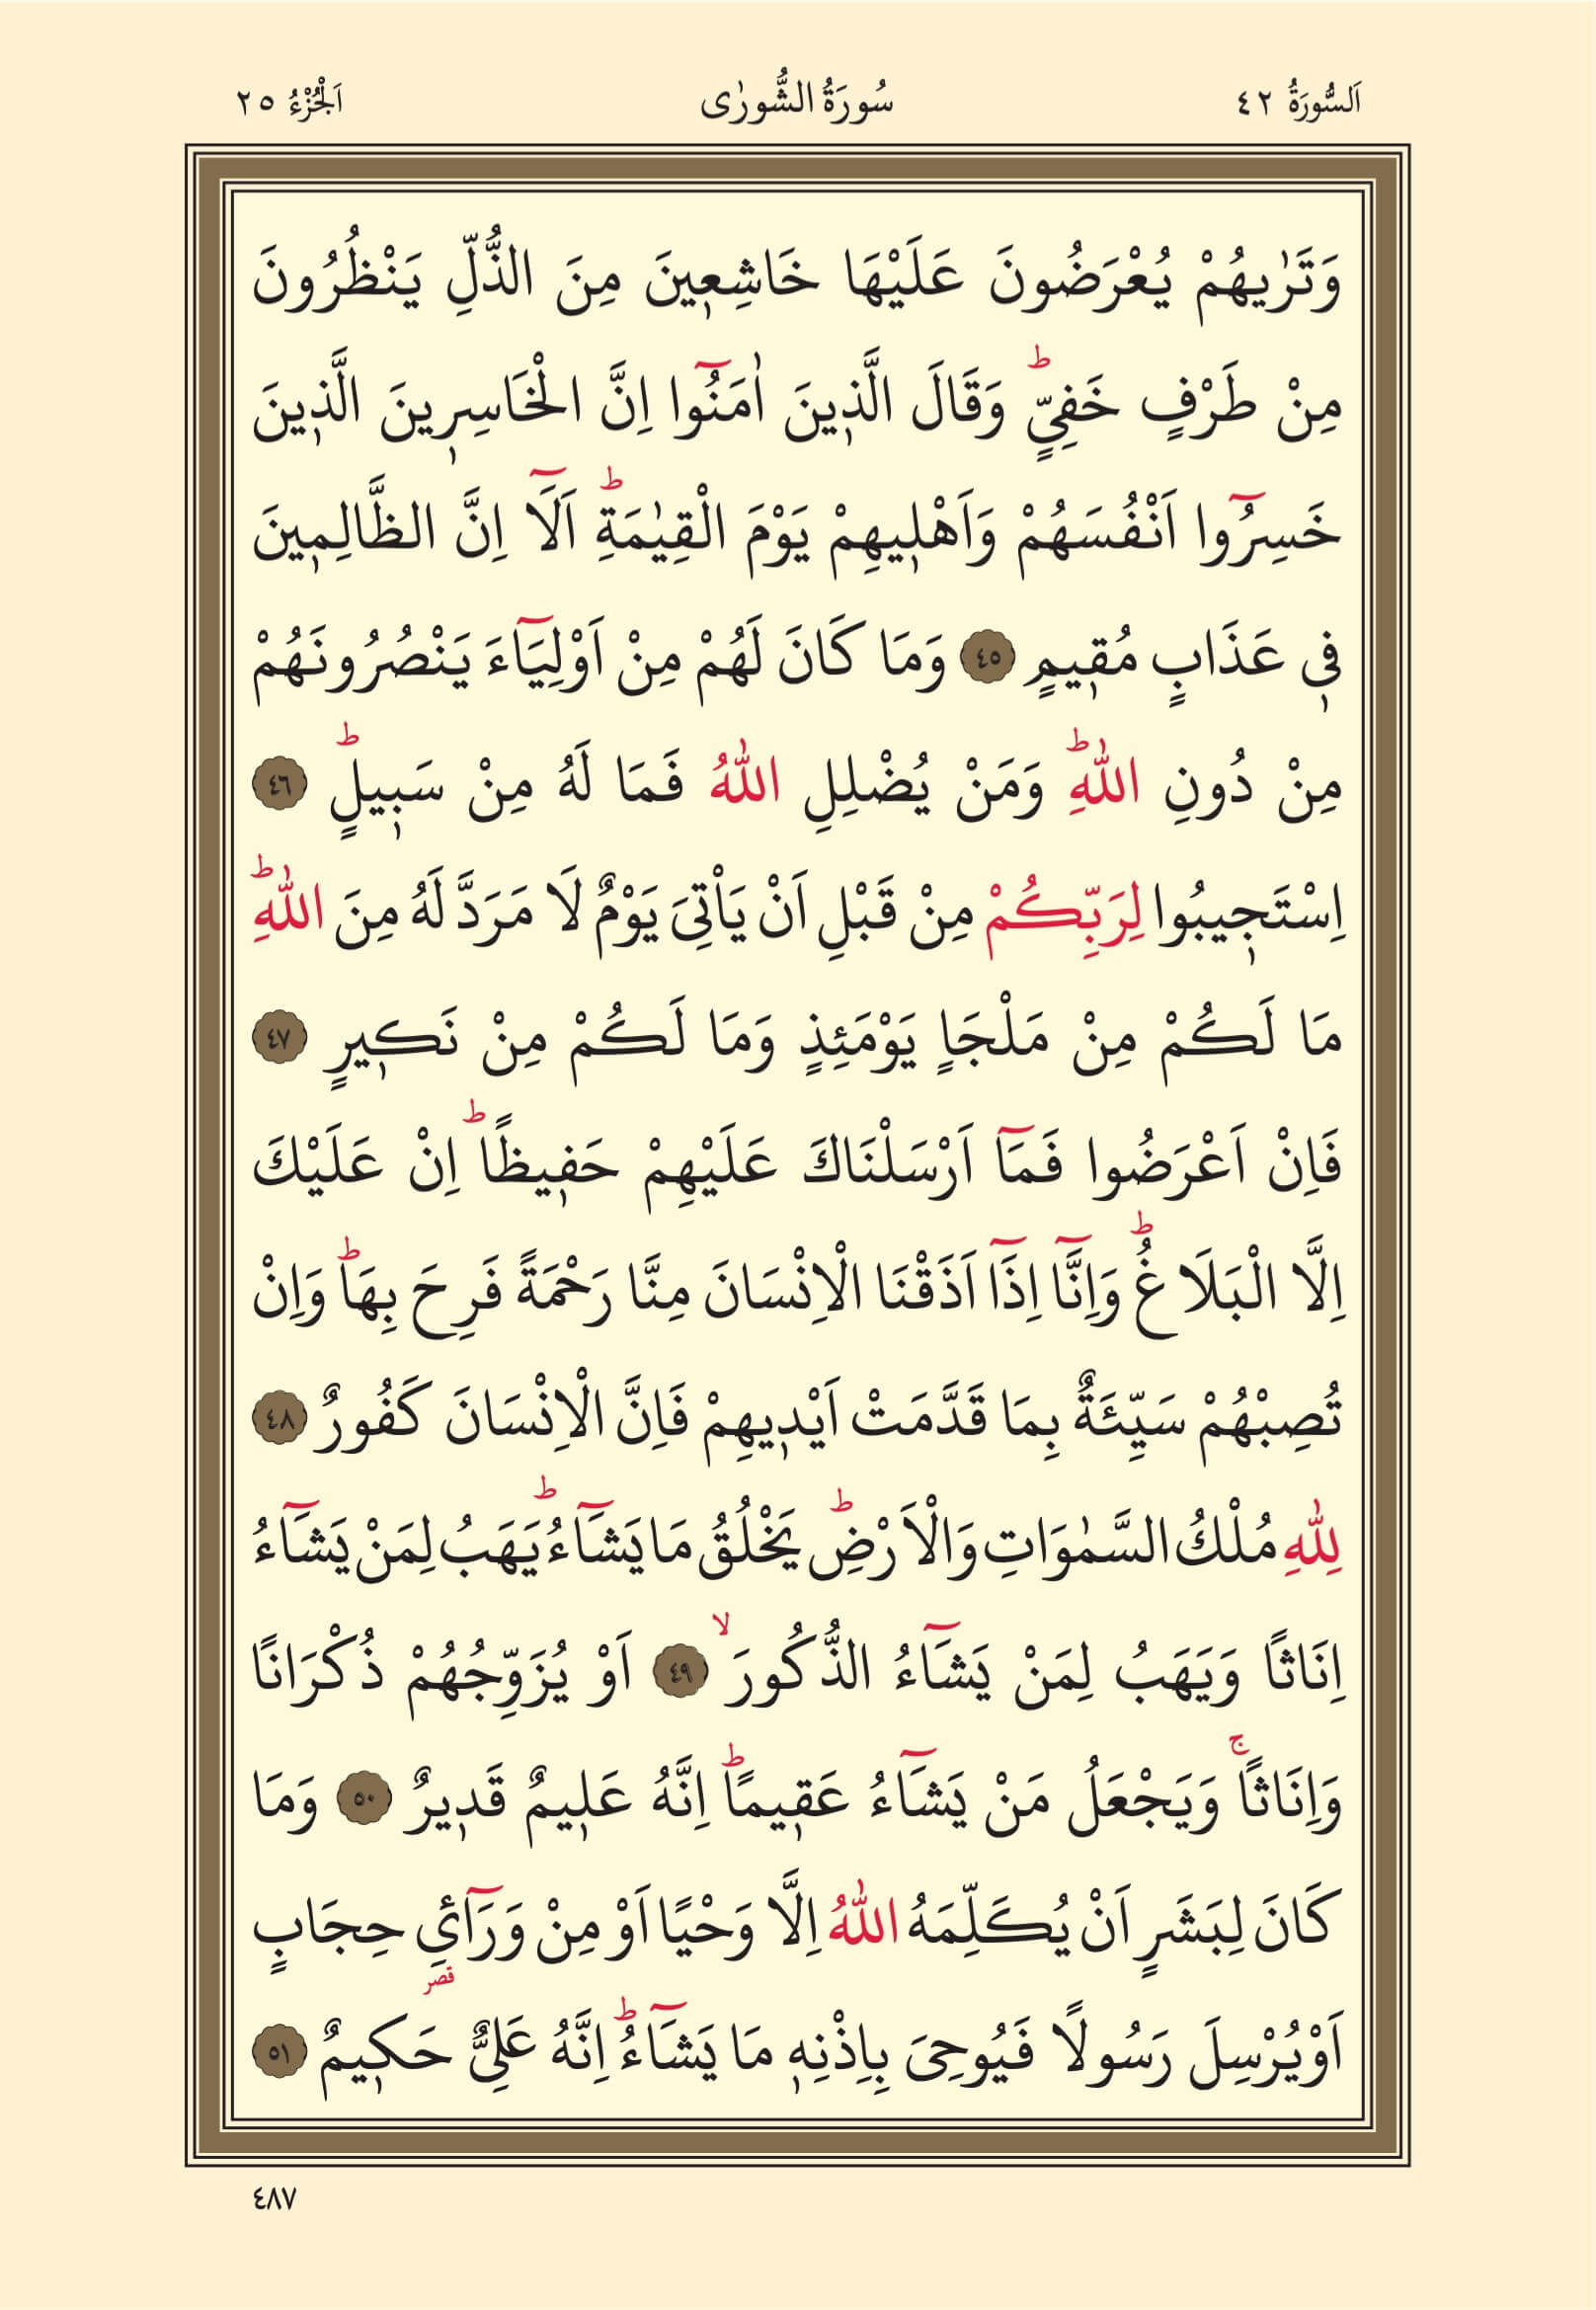 اَلسُّورَةُ ٤٢ سُورَةُ الشُّورٰى اَلْجُزْءُ ٢٥
وَتَرٰيهُمْ يُعْرَضُونَ عَلَيْهَا خَاشِع۪ينَ مِنَ الذُّلِّ يَنْظُرُونَ
مِنْ طَرْفٍ خَفِيٍّۜ وَقَالَ الَّذ۪ينَ اٰمَنُٓوا اِنَّ الْخَاسِر۪ينَ الَّذ۪ينَ
خَسِرُٓوا اَنْفُسَهُمْ وَاَهْل۪يهِمْ يَوْمَ الْقِيٰمَةِۜ اَلَٓا اِنَّ الظَّالِم۪ينَ
ف۪ي عَذَابٍ مُق۪يمٍ ﴿٤٥﴾ وَمَا كَانَ لَهُمْ مِنْ اَوْلِيَٓاءَ يَنْصُرُونَهُمْ
مِنْ دُونِ اللّٰهِۜ وَمَنْ يُضْلِلِ اللّٰهُ فَمَا لَهُ مِنْ سَب۪يلٍۜ ﴿٤٦﴾
اِسْتَج۪يبُوا لِرَبِّكُمْ مِنْ قَبْلِ اَنْ يَأْتِيَ يَوْمٌ لَا مَرَدَّ لَهُ مِنَ اللّٰهِۜ
مَا لَكُمْ مِنْ مَلْجَاٍ يَوْمَئِذٍ وَمَا لَكُمْ مِنْ نَك۪يرٍ ﴿٤٧﴾
فَاِنْ اَعْرَضُوا فَمَٓا اَرْسَلْنَاكَ عَلَيْهِمْ حَف۪يظًاۜ اِنْ عَلَيْكَ
اِلَّا الْبَلَاغُۜ وَاِنَّٓا اِذَٓا اَذَقْنَا الْاِنْسَانَ مِنَّا رَحْمَةً فَرِحَ بِهَاۜ وَاِنْ
تُصِبْهُمْ سَيِّئَةٌ بِمَا قَدَّمَتْ اَيْد۪يهِمْ فَاِنَّ الْاِنْسَانَ كَفُورٌ ﴿٤٨﴾
لِلّٰهِ مُلْكُ السَّمٰوَاتِ وَالْاَرْضِۜ يَخْلُقُ مَا يَشَٓاءُۜ يَهَبُ لِمَنْ يَشَٓاءُ
اِنَاثًا وَيَهَبُ لِمَنْ يَشَٓاءُ الذُّكُورَۙ ﴿٤٩﴾ اَوْ يُزَوِّجُهُمْ ذُكْرَانًا
وَاِنَاثًاۚ وَيَجْعَلُ مَنْ يَشَٓاءُ عَق۪يمًاۜ اِنَّهُ عَل۪يمٌ قَد۪يرٌ ﴿٥٠﴾ وَمَا
كَانَ لِبَشَرٍ اَنْ يُكَلِّمَهُ اللّٰهُ اِلَّا وَحْيًا اَوْ مِنْ وَرَٓائِ حِجَابٍ
قصر
اَوْ يُرْسِلَ رَسُولًا فَيُوحِيَ بِاِذْنِه۪ مَا يَشَٓاءُۜ اِنَّهُ عَلِيٌّ حَك۪يمٌ ﴿٥١﴾
٤٨٧